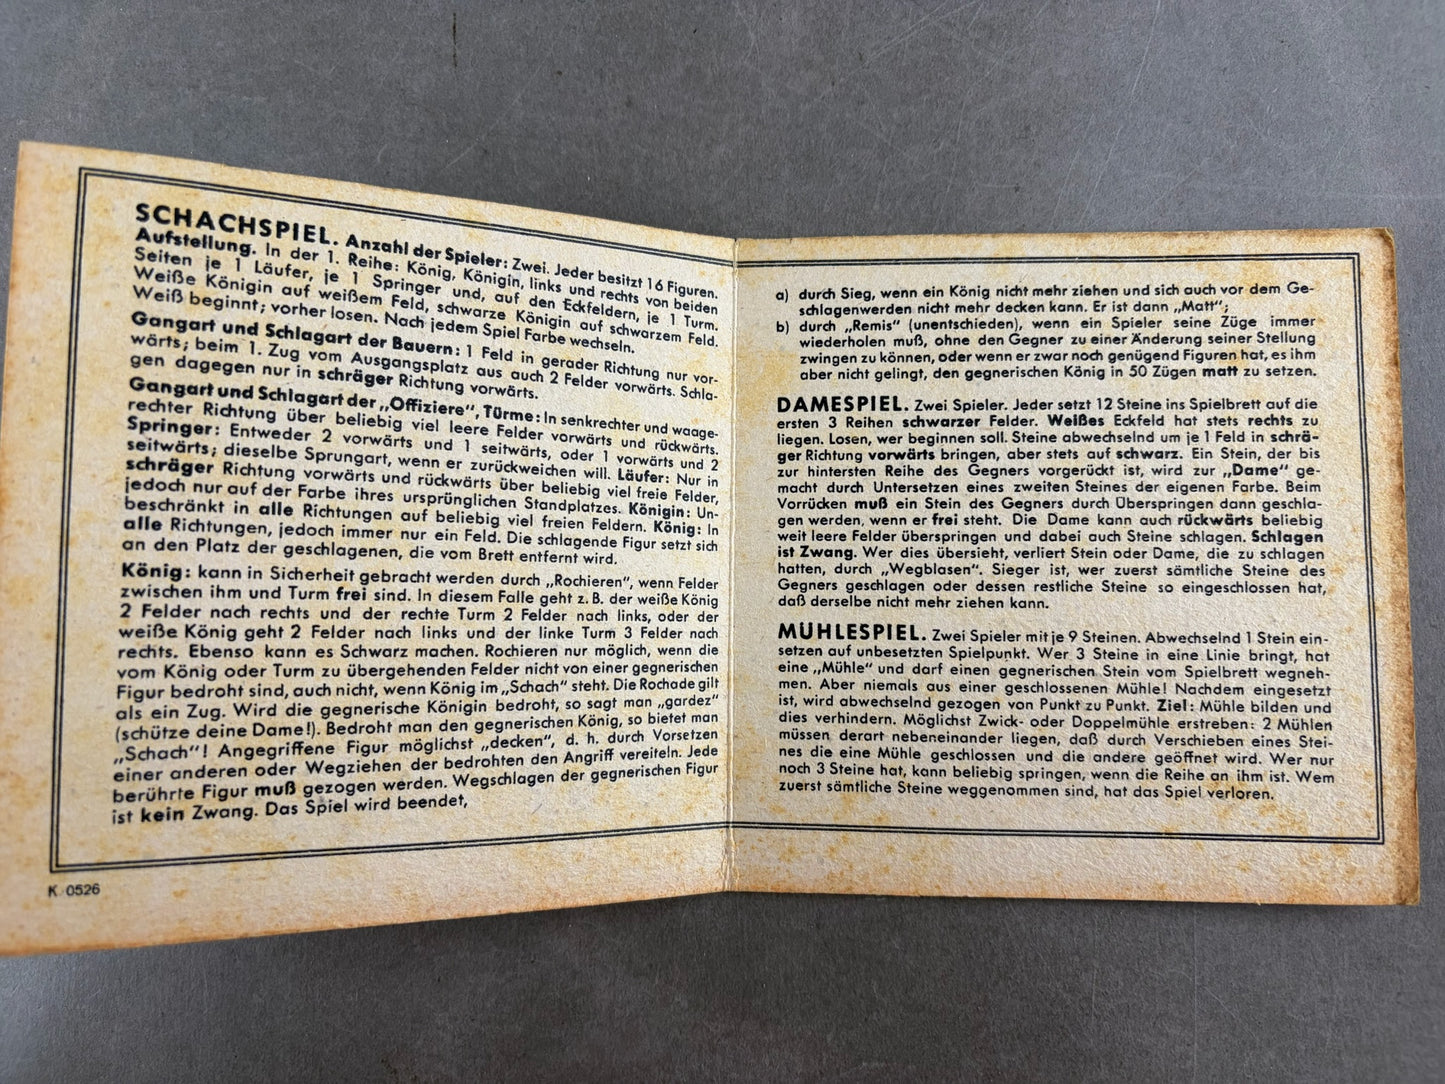 SCHACHSPIEL. Anzahl der Spieler: Zwei. Jeder besitzt 16 Figuren.
Aufstellung. In der 1. Reihe: König, Königin, links und rechts von beiden
Seiten je 1 Läufer, je 1 Springer und, auf den Eckfeldern, je 1 Turm.
Weiße Königin auf weißem Feld, schwarze Königin auf schwarzem Feld.
Weiß beginnt; vorher losen. Nach jedem Spiel Farbe wechseln.
Gangart und Schlagart der Bauern: 1 Feld in gerader Richtung nur vor-
wärts; beim 1. Zug vom Ausgangsplatz aus auch 2 Felder vorwärts. Schla-
gen dagegen nur in schräger Richtung vorwärts.
Gangart und Schlagart der „Offiziere", Türme: In senkrechter und waage-
rechter Richtung über beliebig viel leere Felder vorwärts und rückwärts.
Springer: Entweder 2 vorwärts und 1 seitwärts, oder 1 vorwärts und 2
seitwärts; dieselbe Sprungart, wenn er zurückweichen will. Läufer: Nur in
schräger Richtung vorwärts und rückwärts über beliebig viel freie Felder,
jedoch nur auf der Farbe ihres ursprünglichen Standplatzes. Königin: Un-
beschränkt in alle Richtungen auf beliebig viel freien Feldern. König: In
alle Richtungen, jedoch immer nur ein Feld. Die schlagende Figur setzt sich
an den Platz der geschlagenen, die vom Brett entfernt wird.
König: kann in Sicherheit gebracht werden durch „Rochieren", wenn Felder
zwischen ihm und Turm frei sind. In diesem Falle geht z. B. der weiße König
2 Felder nach rechts und der rechte Turm 2 Felder nach links, oder der
weiße König geht 2 Felder nach links und der linke Turm 3 Felder nach
rechts. Ebenso kann es Schwarz machen. Rochieren nur möglich, wenn die
vom König oder Turm zu übergehenden Felder nicht von einer gegnerischen
Figur bedroht sind, auch nicht, wenn König im „Schach" steht. Die Rochade gilt
als ein Zug. Wird die gegnerische Königin bedroht, so sagt man „gardez"
(schütze deine Dame!). Bedroht man den gegnerischen König, so bietet man
„Schach"! Angegriffene Figur möglichst „decken", d. h. durch Vorsetzen
einer anderen oder Wegziehen der bedrohten den Angriff vereiteln. Jede
berührte Figur muß gezogen werden. Wegschlagen der gegnerischen Figur
ist kein Zwang. Das Spiel wird beendet,
K 0526
a) durch Sieg, wenn ein König nicht mehr ziehen und sich auch vor dem Ge-
schlagenwerden nicht mehr decken kann. Er ist dann „Matt";
b) durch „Remis" (unentschieden), wenn ein Spieler seine Züge immer
wiederholen muß, ohne den Gegner zu einer Änderung seiner Stellung
zwingen zu können, oder wenn er zwar noch genügend Figuren hat, es ihm
aber nicht gelingt, den gegnerischen König in 50 Zügen matt zu setzen.
DAMESPIEL. Zwei Spieler. Jeder setzt 12 Steine ins Spielbrett auf die
ersten 3 Reihen schwarzer Felder. Weißes Eckfeld hat stets rechts zu
liegen. Losen, wer beginnen soll. Steine abwechselnd um je 1 Feld in schrä-
ger Richtung vorwärts bringen, aber stets auf schwarz. Ein Stein, der bis
zur hintersten Reihe des Gegners vorgerückt ist, wird zur „Dame" ge-
macht durch Untersetzen eines zweiten Steines der eigenen Farbe. Beim
Vorrücken muß ein Stein des Gegners durch Überspringen dann geschla-
gen werden, wenn er frei steht. Die Dame kann auch rückwärts beliebig
weit leere Felder überspringen und dabei auch Steine schlagen. Schlagen
ist Zwang. Wer dies übersieht, verliert Stein oder Dame, die zu schlagen
hatten, durch „Wegblasen". Sieger ist, wer zuerst sämtliche Steine des
Gegners geschlagen oder dessen restliche Steine so eingeschlossen hat,
daß derselbe nicht mehr ziehen kann.
MÜHLESPIEL. Zwei Spieler mit je 9 Steinen. Abwechselnd 1 Stein ein-
setzen auf unbesetzten Spielpunkt. Wer 3 Steine in eine Linie bringt, hat
eine „Mühle" und darf einen gegnerischen Stein vom Spielbrett wegneh-
men. Aber niemals aus einer geschlossenen Mühle! Nachdem eingesetzt
ist, wird abwechselnd gezogen von Punkt zu Punkt. Ziel: Mühle bilden und
dies verhindern. Möglichst Zwick- oder Doppelmühle erstreben: 2 Mühlen
müssen derart nebeneinander liegen, daß durch Verschieben eines Stei-
nes die eine Mühle geschlossen und die andere geöffnet wird. Wer nur
noch 3 Steine hat, kann beliebig springen, wenn die Reihe an ihm ist. Wem
zuerst sämtliche Steine weggenommen sind, hat das Spiel verloren.